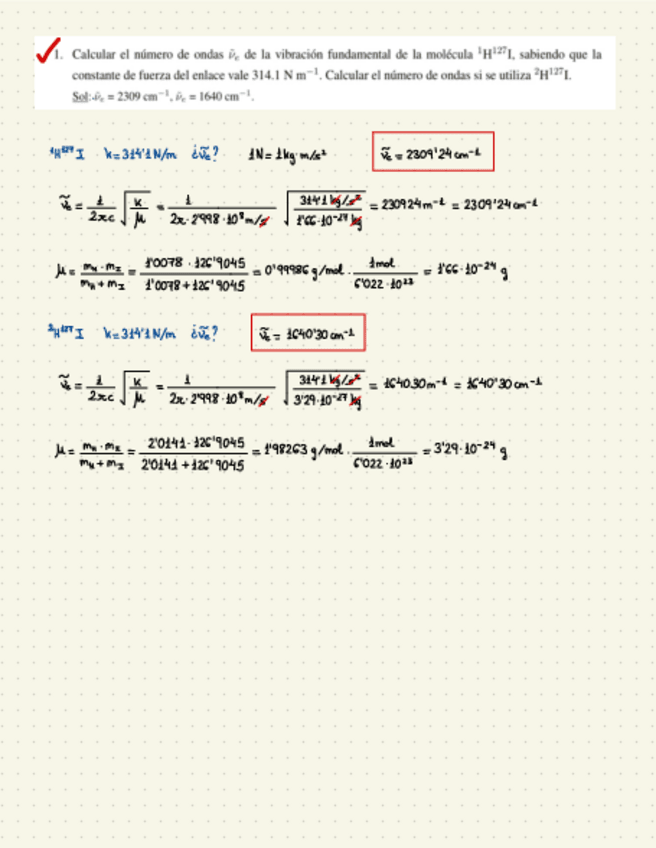 1. Calcular el número de ondas ν̃ₑ de la vibración fundamental de la molécula ¹H¹²⁷I, sabiendo que la
constante de fuerza del enlace vale 314.1 N m⁻¹. Calcular el número de ondas si se utiliza ²H¹²⁷I.
Sol: ν̃ₑ = 2309 cm⁻¹, ν̃ₑ = 1640 cm⁻¹.
¹H¹²⁷I k=314'1N/m ¿ν̃ₑ? 1N=1kg·m/s² ν̃ₑ = 2309'24cm⁻¹
ν̃ₑ = 1/2πc √(k/μ) = 1/(2π·2'998·10⁸m/s) √(314'1 kg/s² / 1'66·10⁻²⁷ kg) = 230924m⁻¹ = 2309'24cm⁻¹
μ = (m_H·m_I)/(m_H+m_I) = (1'0078·126'9045)/(1'0078+126'9045) = 0'99986g/mol · 1mol/6'022·10²³ = 1'66·10⁻²⁴ g
²H¹²⁷I k=314'1N/m ¿ν̃ₑ? ν̃ₑ = 1640'30cm⁻¹
ν̃ₑ = 1/2πc √(k/μ) = 1/(2π·2'998·10⁸m/s) √(314'1 kg/s² / 3'29·10⁻²⁷ kg) = 164030m⁻¹ = 1640'30cm⁻¹
μ = (m_H·m_I)/(m_H+m_I) = (2'0141·126'9045)/(2'0141+126'9045) = 1'98263g/mol · 1mol/6'022·10²³ = 3'29·10⁻²⁴ g